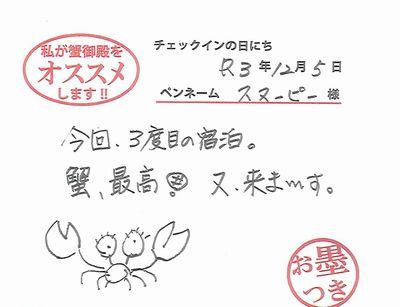 私が蟹御殿を
オススメ
します!!
チェックインの日にち
R3年12月5日
ペンネーム スヌーピー 様
今回、3度目の宿泊。
蟹、最高! 又、来まーす。
お墨
つき